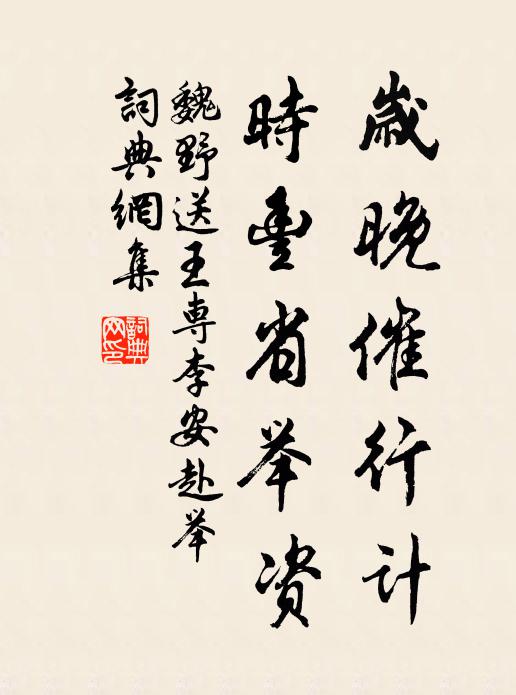 歲晚催行計
時豊省举资
魏野送王専李安赴举
詞典網集
詞典
网印